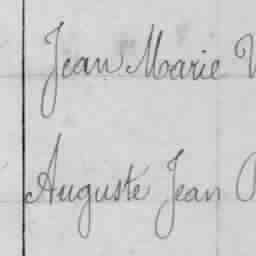 Jean Marie
Auguste Jean